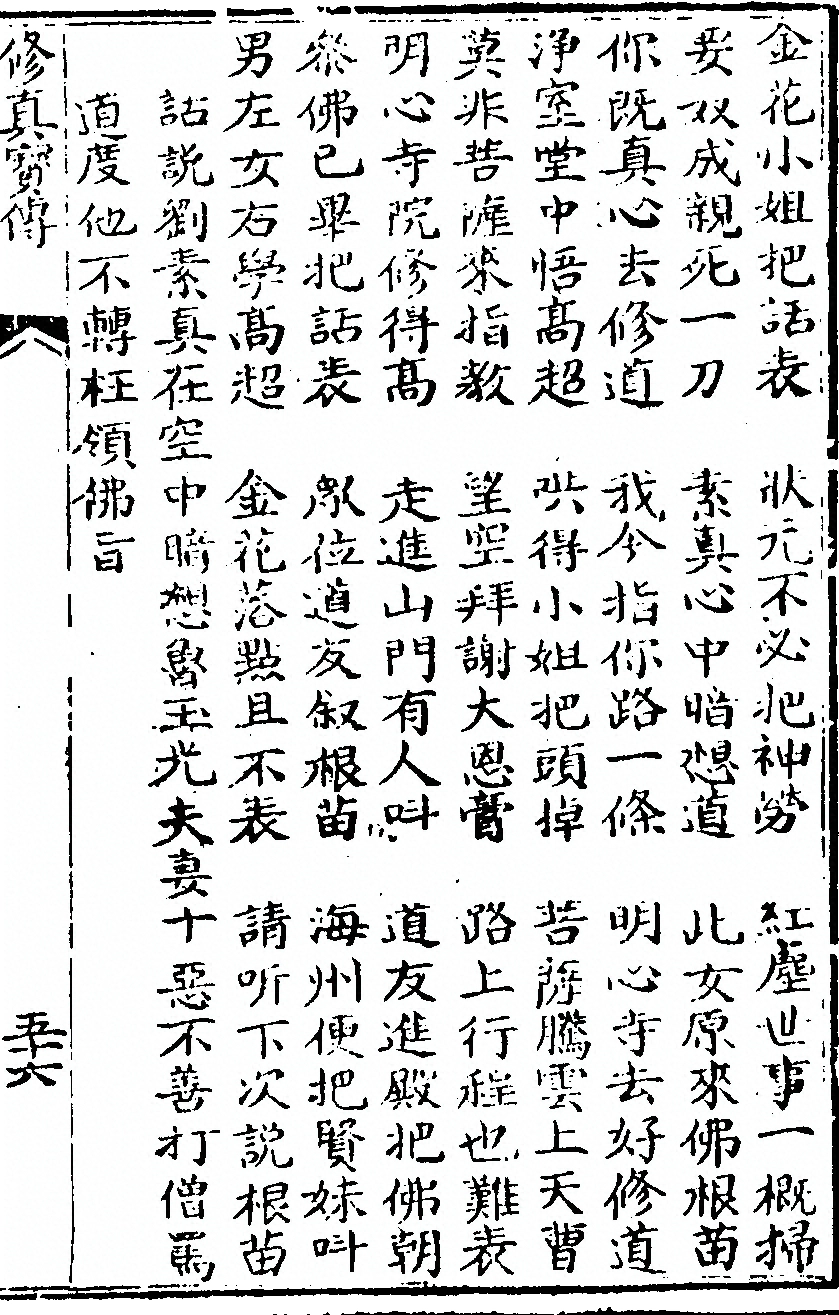 金花小姐把話表　狀元不必把神勞　紅塵世事一概掃
要奴成親死一刀　素真心中暗想道　此女原來佛根苗
你既真心去修道　我今指你路一條　明心寺去好修道
淨室堂中悟高超　哄得小姐把頭掉　菩薩騰雲上天曹
莫非菩薩來指教　望空拜謝大恩膏　路上行程也難表
明心寺院修得高　走進山門有人叫　道友進殿把佛朝
叅佛已畢把話表　眾位道友叙根苗　海州便把賢妹叫
男左女右學高超　金花落點且不表　請听下次說根苗
話說劉素真在空中暗想魯玉光夫妻十惡不善打僧罵
道度他不轉枉領佛旨
修真寶傳
五十六